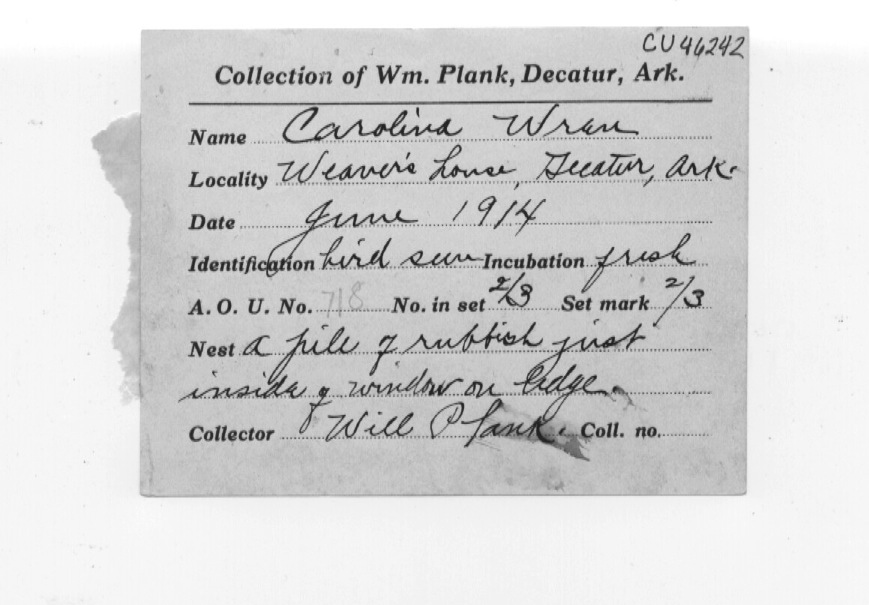 CU46242
Collection of Wm. Plank, Decatur, Ark.
Name Carolina Wren
Locality Weaver's house, Decatur, Ark.
Date June 1914
Identification bird seen Incubation fresh
A. O. U. No. 718 No. in set 2/3 Set mark 2/3
Nest a pile of rubbish just
inside of window on ledge.
Collector Will Plank. Coll. no.